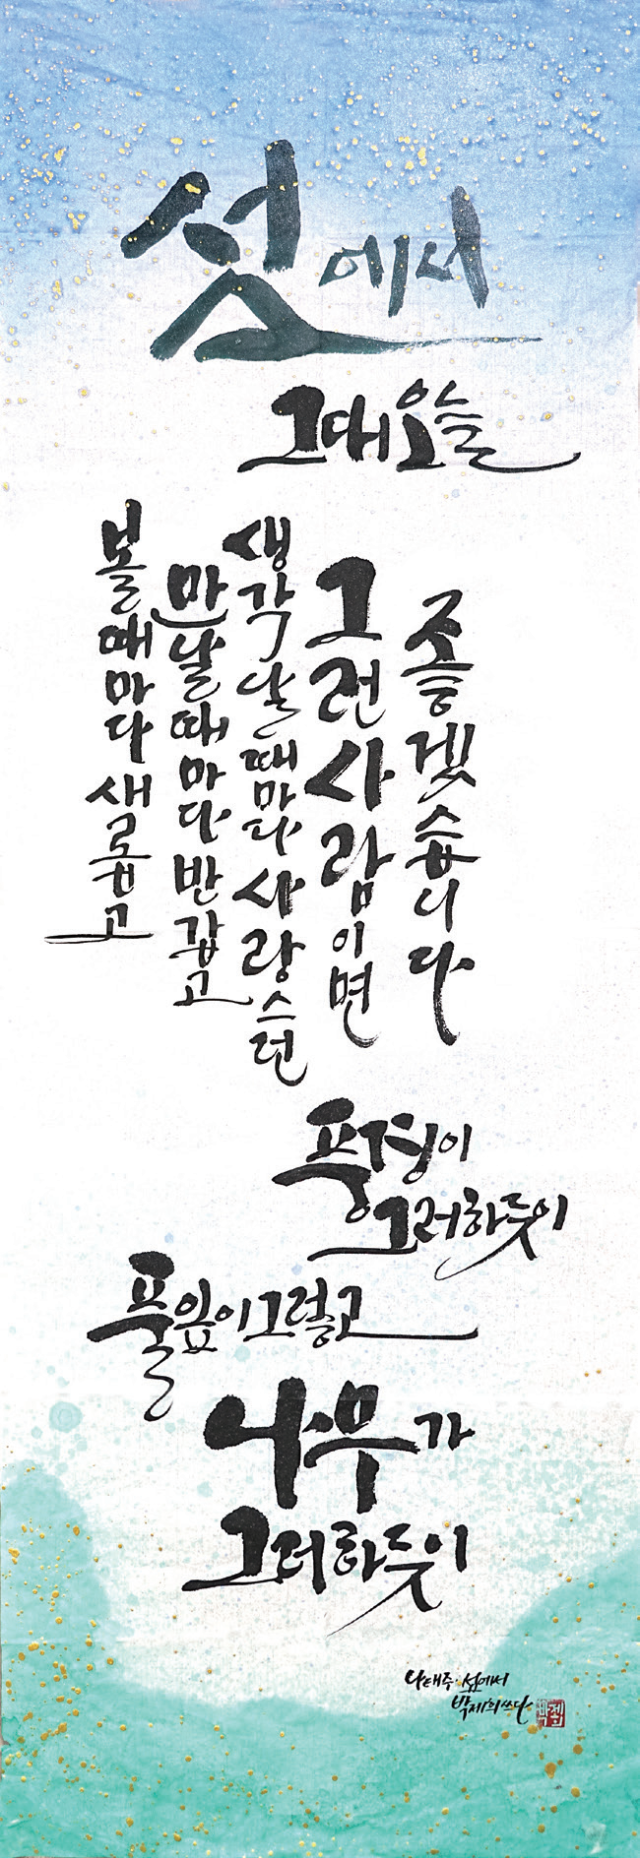 섬에서
그대 오늘
볼때마다 새롭고
만날때마다 반갑고
생각날때마다 사랑스런
그런 사람이면
좋겠습니다
풍경이
그러하듯이
풀잎이 그렇고
나무가
그러하듯이
나태주·섬에서
박제희 쓰다